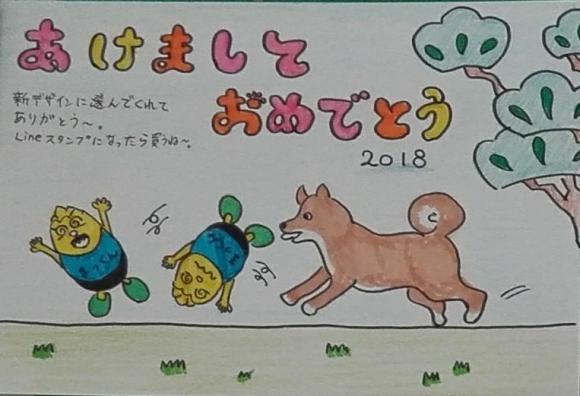 あけまして
おめでとう
2018
新デザインに選んでくれて
ありがとう〜。
Lineスタンプになったら買うね〜。
まっくん